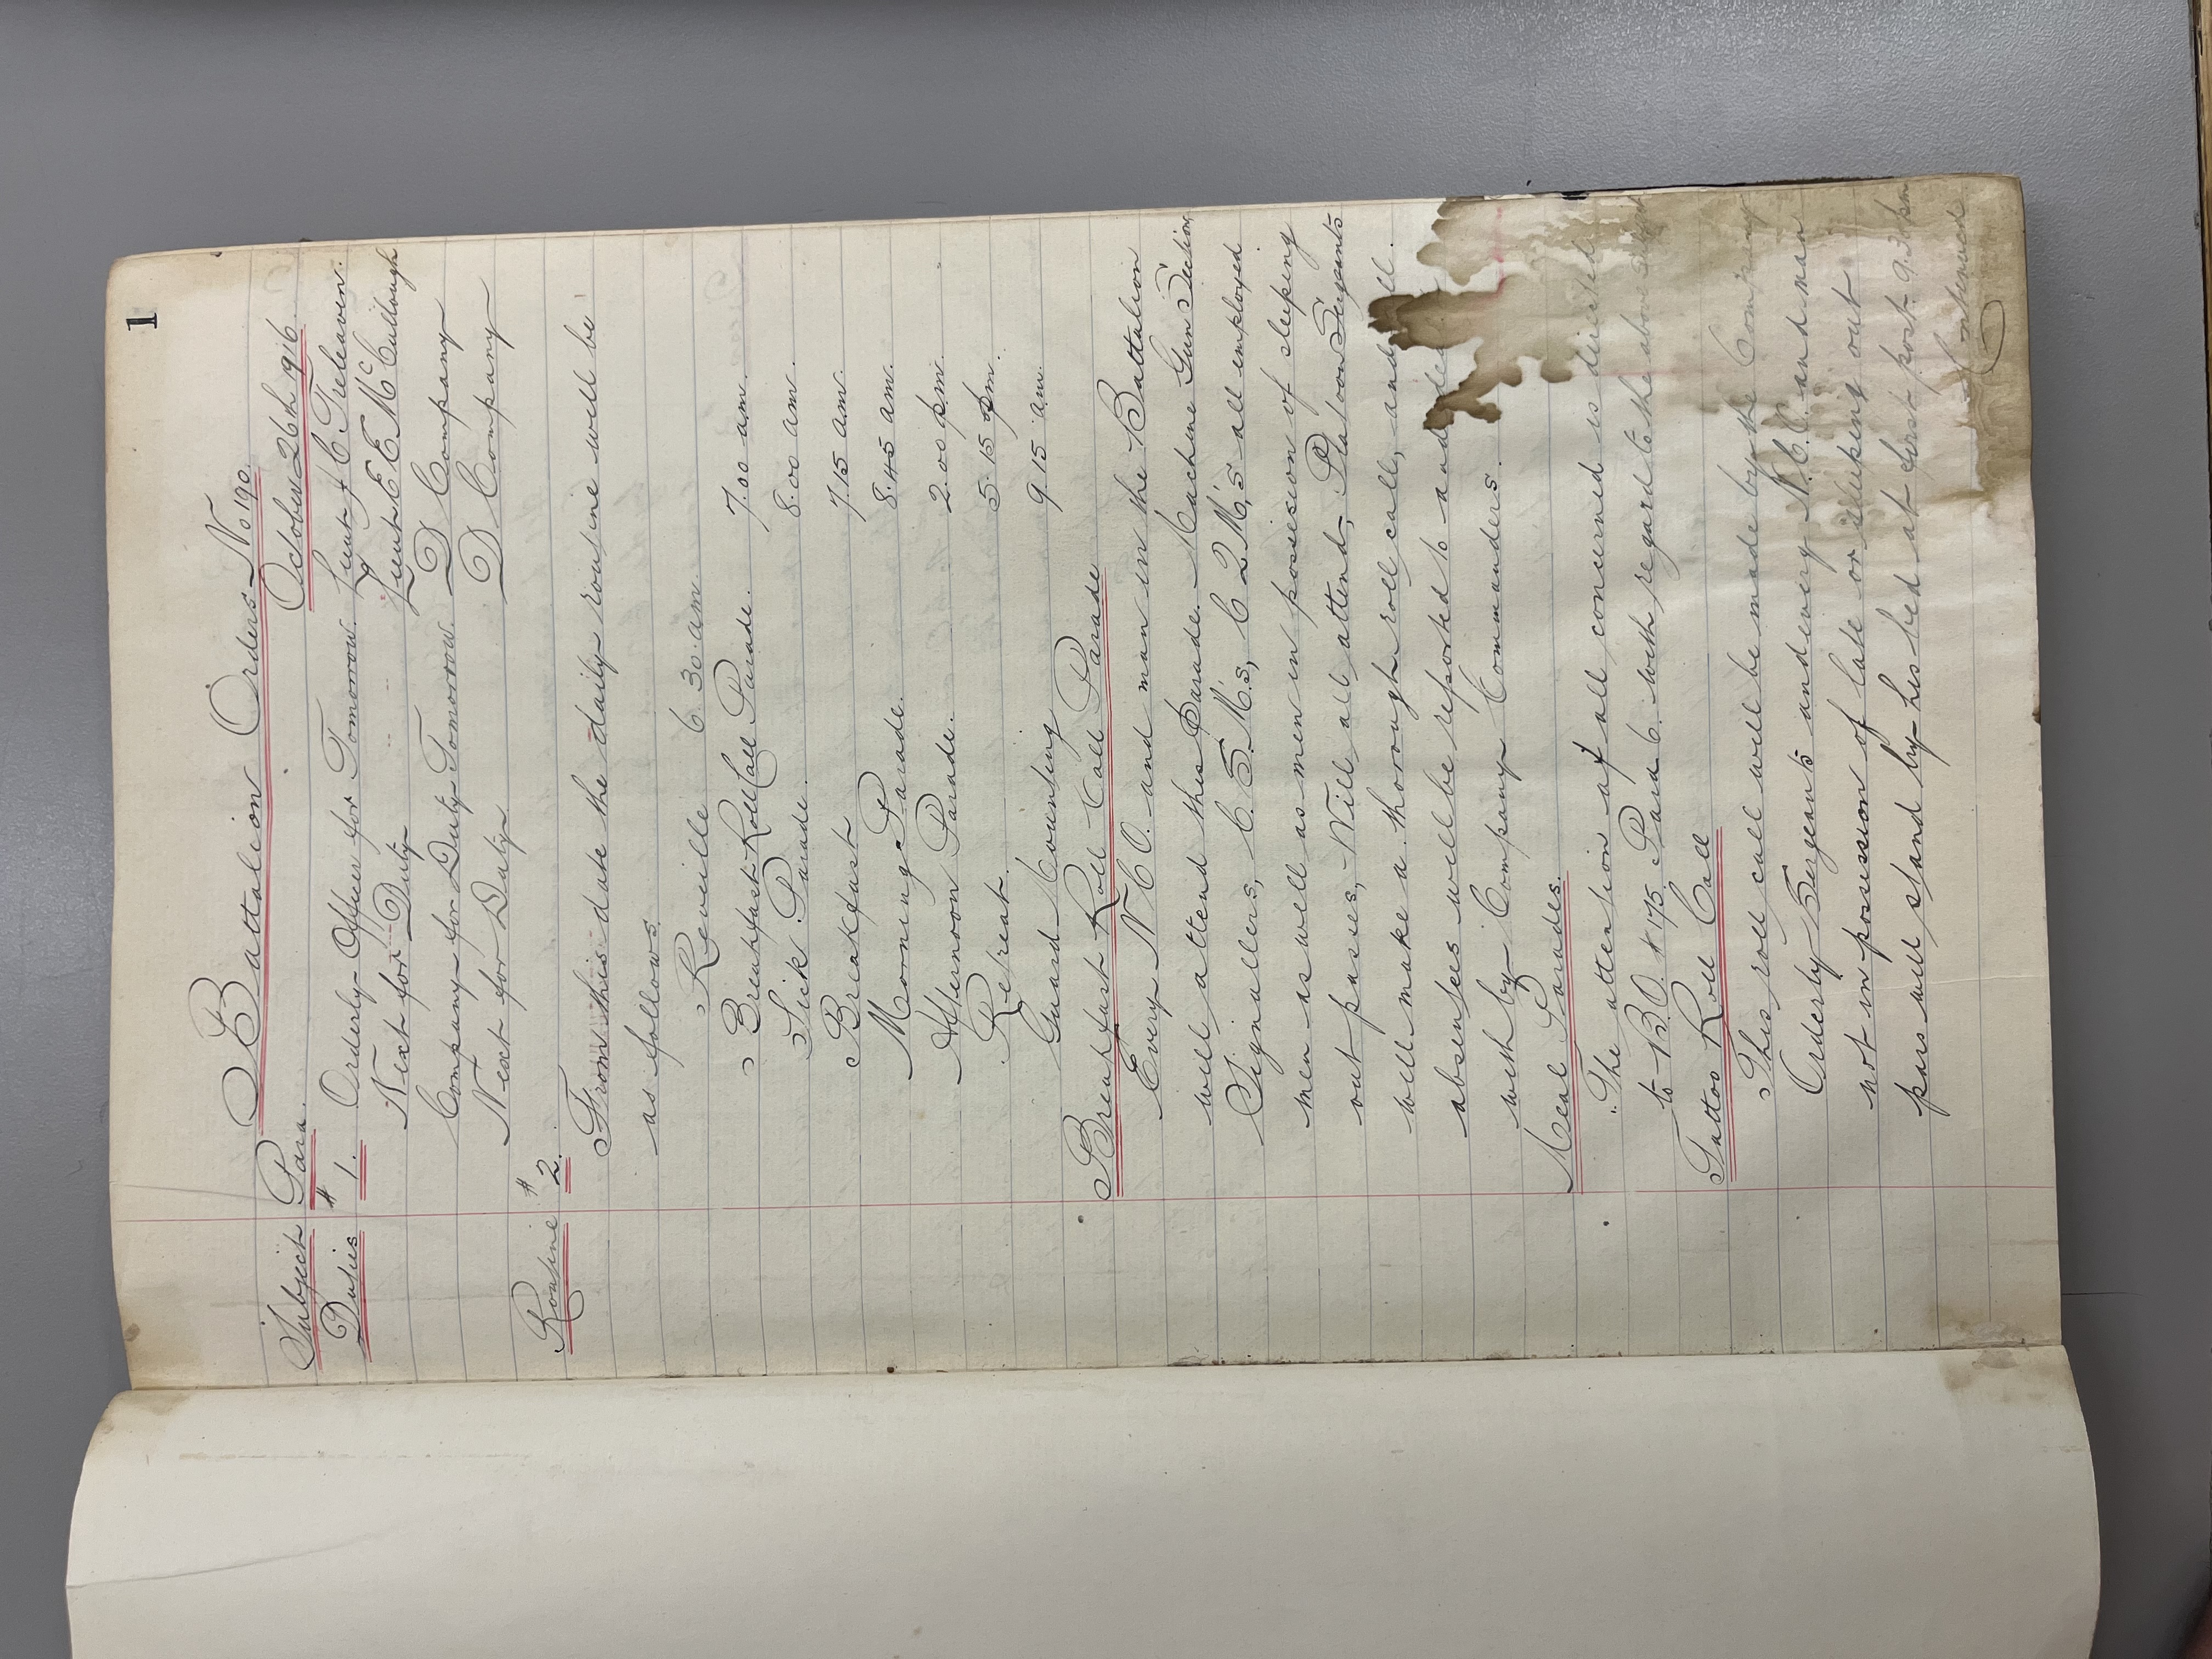 1
Battalion Orders No 190.
Subject Para. October 26th 1916.
Duties # 1. Orderly Officer for Tomorrow. Lieut J C Treleaven.
Next for Duty " " Lieut E E McCullough
Company for Duty Tomorrow. D Company
Next for Duty D Company
Routine # 2.
From this date the daily routine will be
as follows.
Reveille 6.30. am
Breakfast Roll Call Parade. 7.00 am.
Sick Parade. 8.00 am.
Breakfast 7.15 am.
Morning Parade. 8.45 am.
Afternoon Parade. 2.00 pm.
Retreat. 5.15 pm.
Guard Mounting 9.15 am.
Breakfast Roll Call Parade
Every N C O. and man in the Battalion
will attend this Parade. Machine Gun Section,
Signallers, C. S. M.'s, C Q M.'S all employed
men as well as men in possession of sleeping
out passes, Will all attend, Platoon Sergeants
will make a thorough roll call, and all.
absentees will be reported to and
with by Company Commanders.
Meal Parades.
The attention of all concerned is directed
to B.O. # 175. Para 6. with regard to the above
Tattoo Roll Call
This roll call will be made by the Company
Orderly Sergeants and every N.C.O. and man
not in possession of late or sleeping out
pass will stand by his bed at first post 9.30 pm